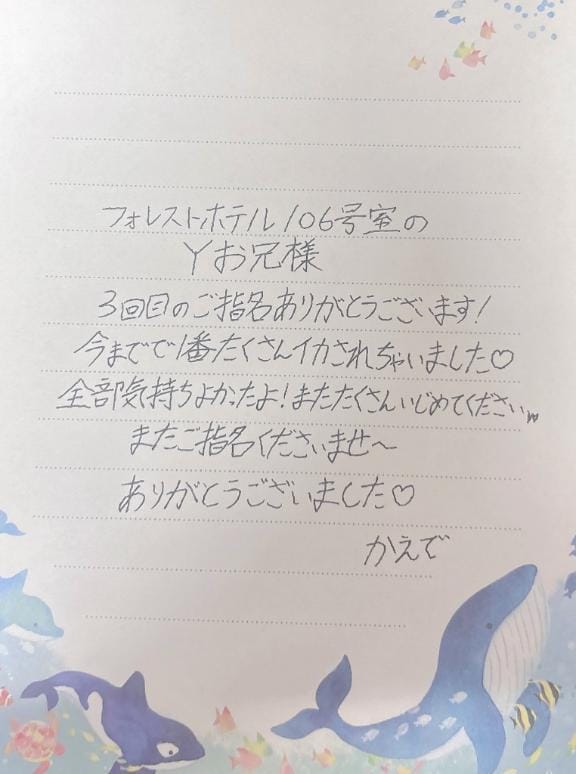 フォレストホテル106号室の
Yお兄様
3回目のご指名ありがとうございます!
今までで1番たくさんイカされちゃいました♡
全部気持ちよかったよ!またたくさんいじめてくださいw
またご指名くださいませ〜
ありがとうございました♡
かえで